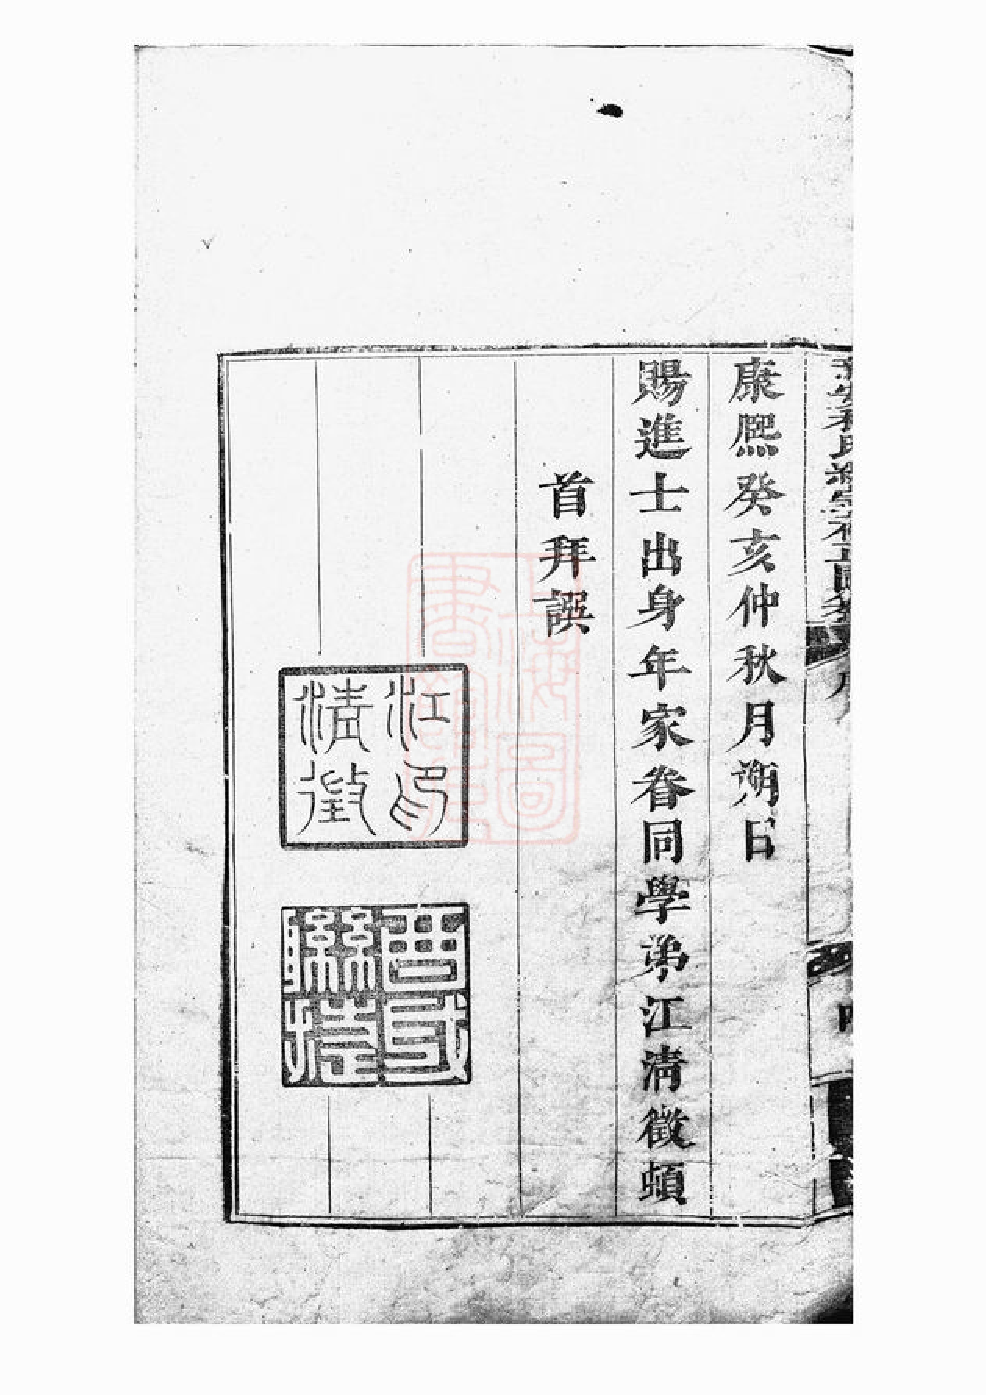 康熙癸亥仲秋月朔日
賜進士出身年家眷同學弟江清徵頓
首拜譔
江印
清徵
聯